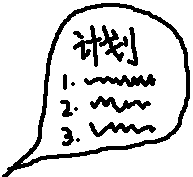 计划
1.
2.
3.